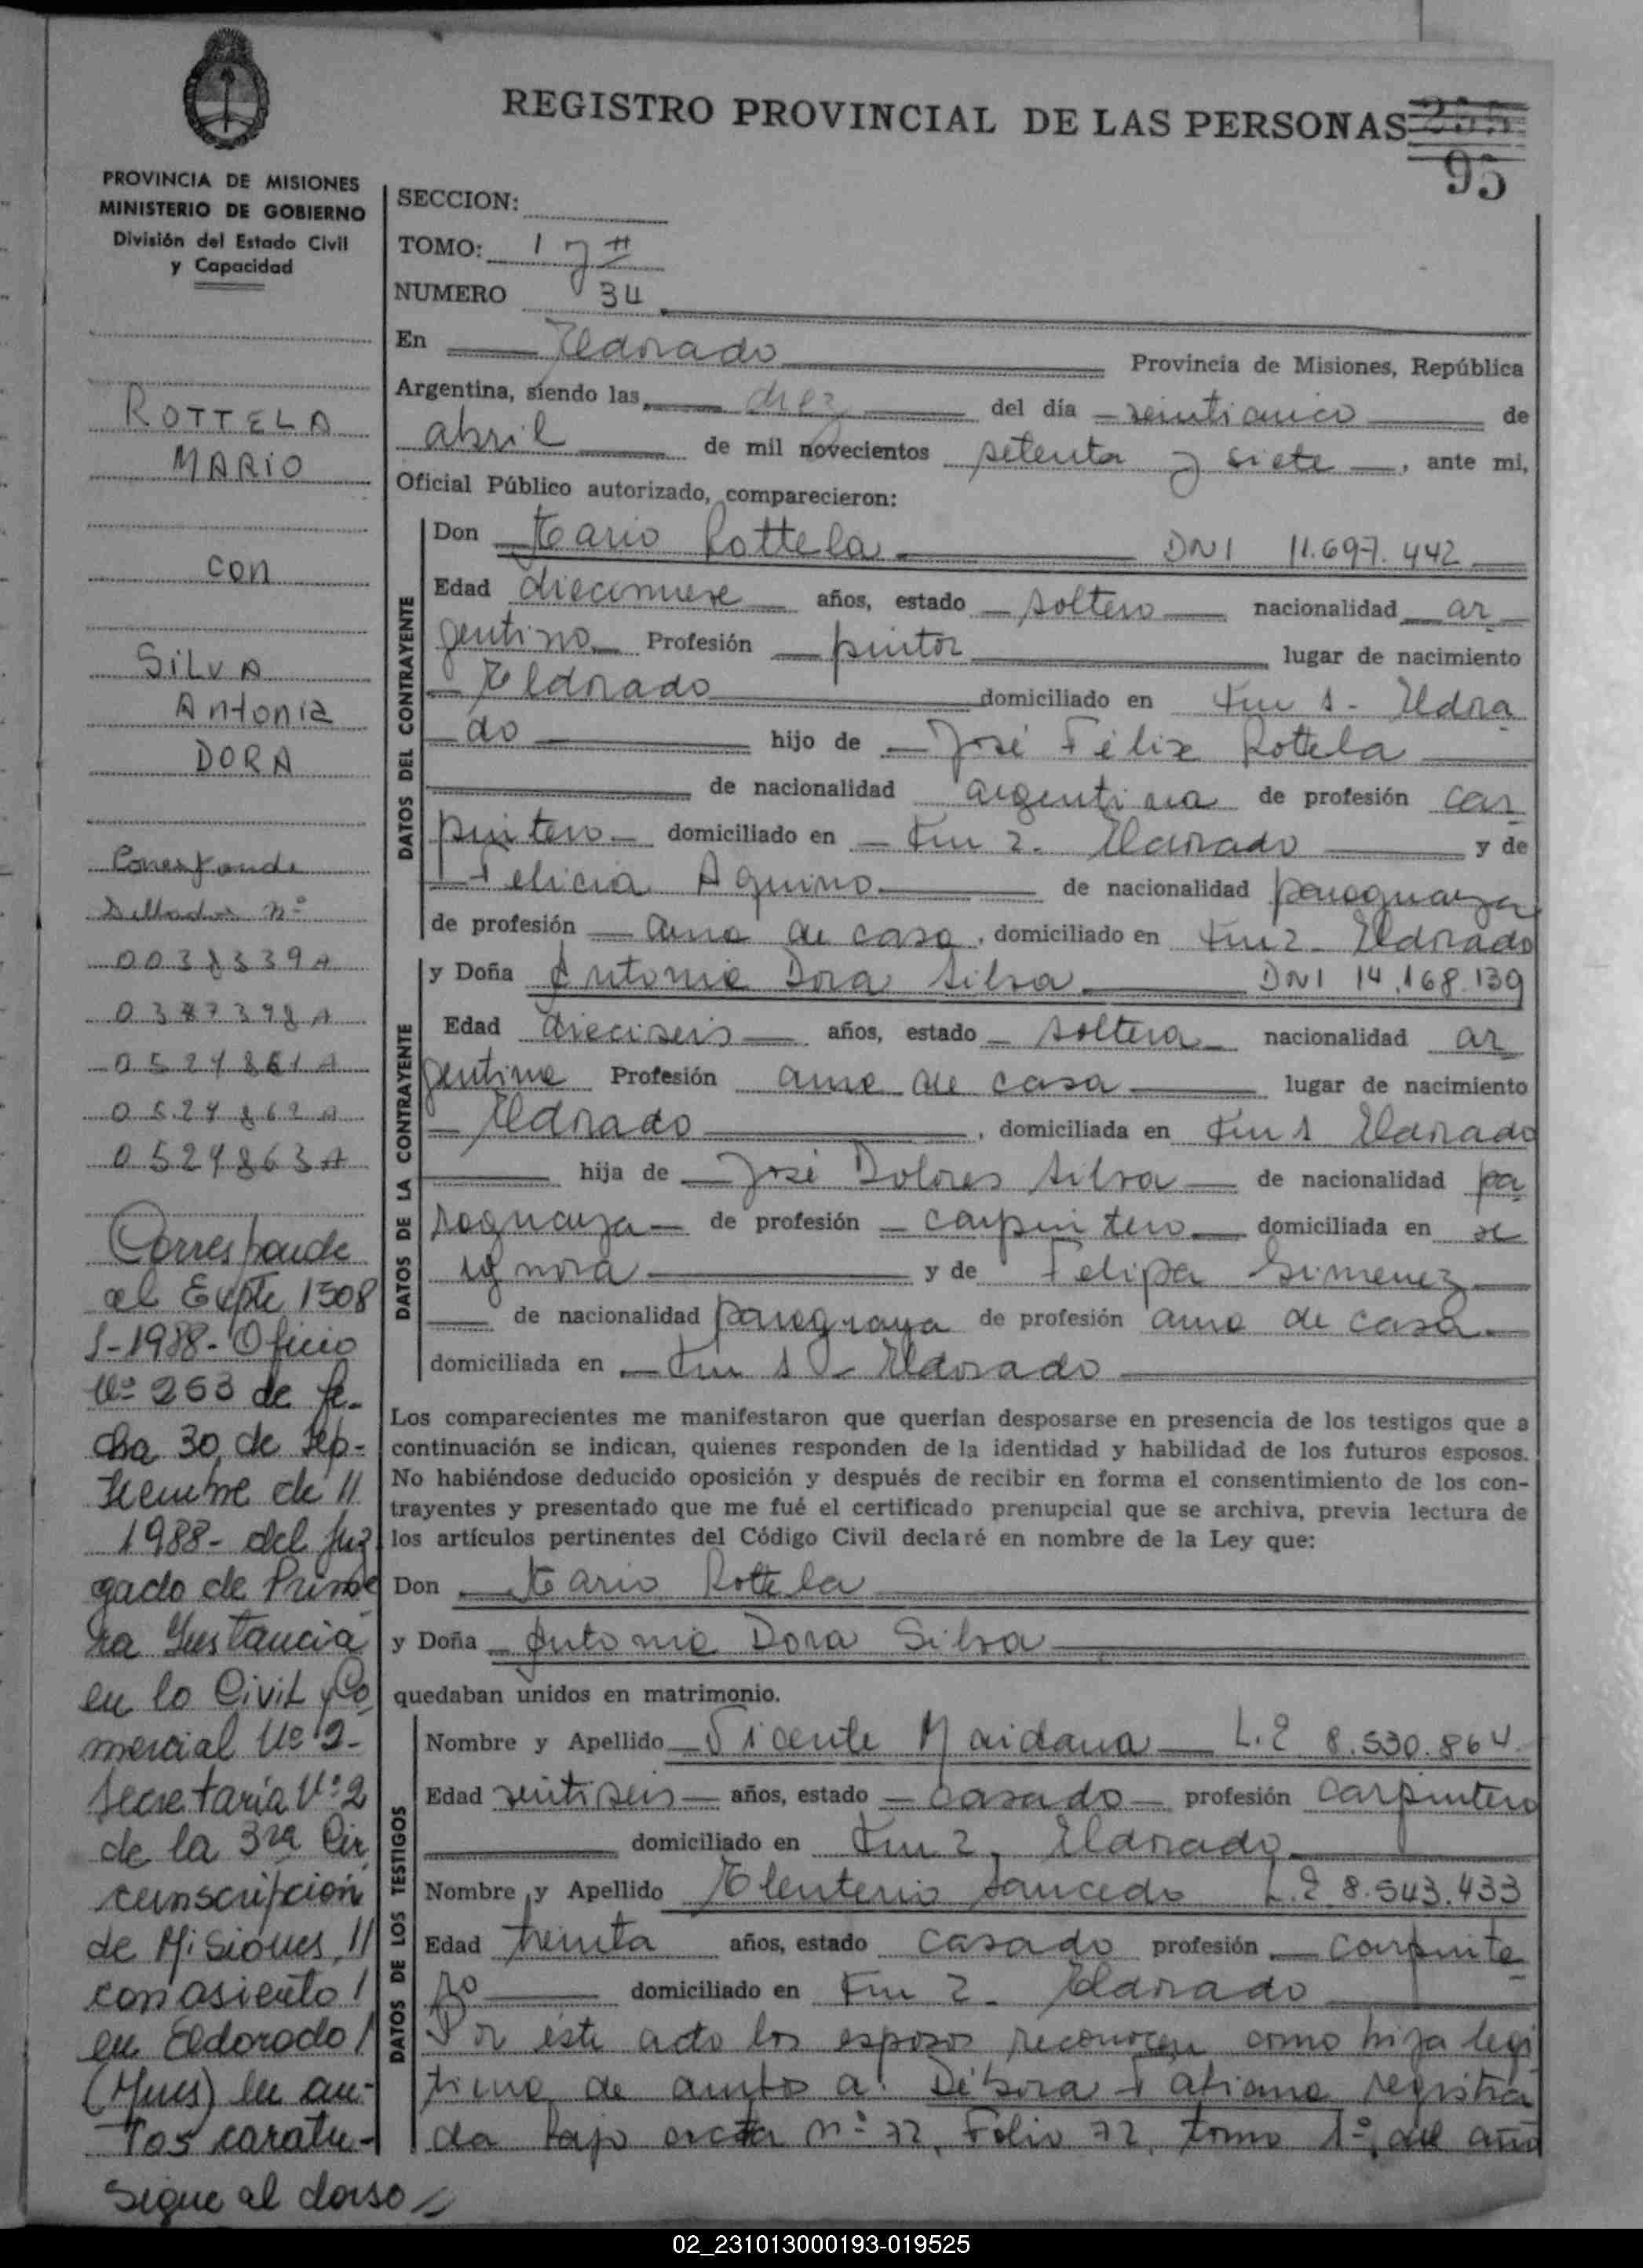 REGISTRO PROVINCIAL DE LAS PERSONAS
95
PROVINCIA DE MISIONES
MINISTERIO DE GOBIERNO
División del Estado Civil
y Capacidad
ROTTELA
MARIO
con
SILVA
Antonia
DORA
Corresponde
Sellados nº
0524861A
0524862A
0524863A
Corresponde
al Expte 1508
S-1988-Oficio
Nº 263 de fe-
cha 30 de Sep-
tiembre de //
1988- del Juz
gado de Prime
ra Instancia
en lo Civil y Co
mercial Nº 2-
Secretaría Nº 2
de la 3ra Cir
cunscripción
de Misiones, //
con asiento /
en Eldorado /
(Mnes) en au-
tos caratu-
Sigue al dorso
SECCION:
TOMO: 1 y II
NUMERO 34
En Eldorado Provincia de Misiones, República
Argentina, siendo las diez del día veinticinco de
abril de mil novecientos setenta y siete, ante mi,
Oficial Público autorizado, comparecieron:
DATOS DEL CONTRAYENTE
Don Mario Rottela DNI 11.697.442
Edad diecinueve años, estado soltero nacionalidad ar
gentino Profesión pintor lugar de nacimiento
Eldorado domiciliado en Km 1- Eldora
do hijo de José Félix Rottela
de nacionalidad argentina de profesión car
pintero domiciliado en Km 2. Eldorado y de
Felicia Aquino de nacionalidad paraguaya
de profesión ama de casa, domiciliado en Km 2- Eldorado
DATOS DE LA CONTRAYENTE
y Doña Antonia Dora Silva DNI 14.168.139
Edad dieciseis años, estado soltera nacionalidad ar
gentina Profesión ama de casa lugar de nacimiento
Eldorado, domiciliada en Km 1 Eldorado
hija de José Dolores Silva de nacionalidad pa
raguaya de profesión carpintero domiciliada en se
ignora y de Felipa Gimenez
de nacionalidad paraguaya de profesión ama de casa
domiciliada en Km 1 - Eldorado
Los comparecientes me manifestaron que querían desposarse en presencia de los testigos que a
continuación se indican, quienes responden de la identidad y habilidad de los futuros esposos.
No habiéndose deducido oposición y después de recibir en forma el consentimiento de los con-
trayentes y presentado que me fué el certificado prenupcial que se archiva, previa lectura de
los artículos pertinentes del Código Civil declaré en nombre de la Ley que:
Don Mario Rottela
y Doña Antonia Dora Silva
quedaban unidos en matrimonio.
DATOS DE LOS TESTIGOS
Nombre y Apellido Vicente Maidana L.E 8.530.864
Edad veintiseis años, estado casado profesión carpintero
domiciliado en Km 2, Eldorado
Nombre y Apellido Eleuterio Saucedo L.E 8.543.433
Edad treinta años, estado casado profesión carpinte
ro domiciliado en Km 2- Eldorado
Por éste acto los esposos reconocen como hija legí
tima de ambos a: Débora Tatiana registra
da bajo acta nº 72, Folio 72, tomo 1º, del año
02_231013000193-019525